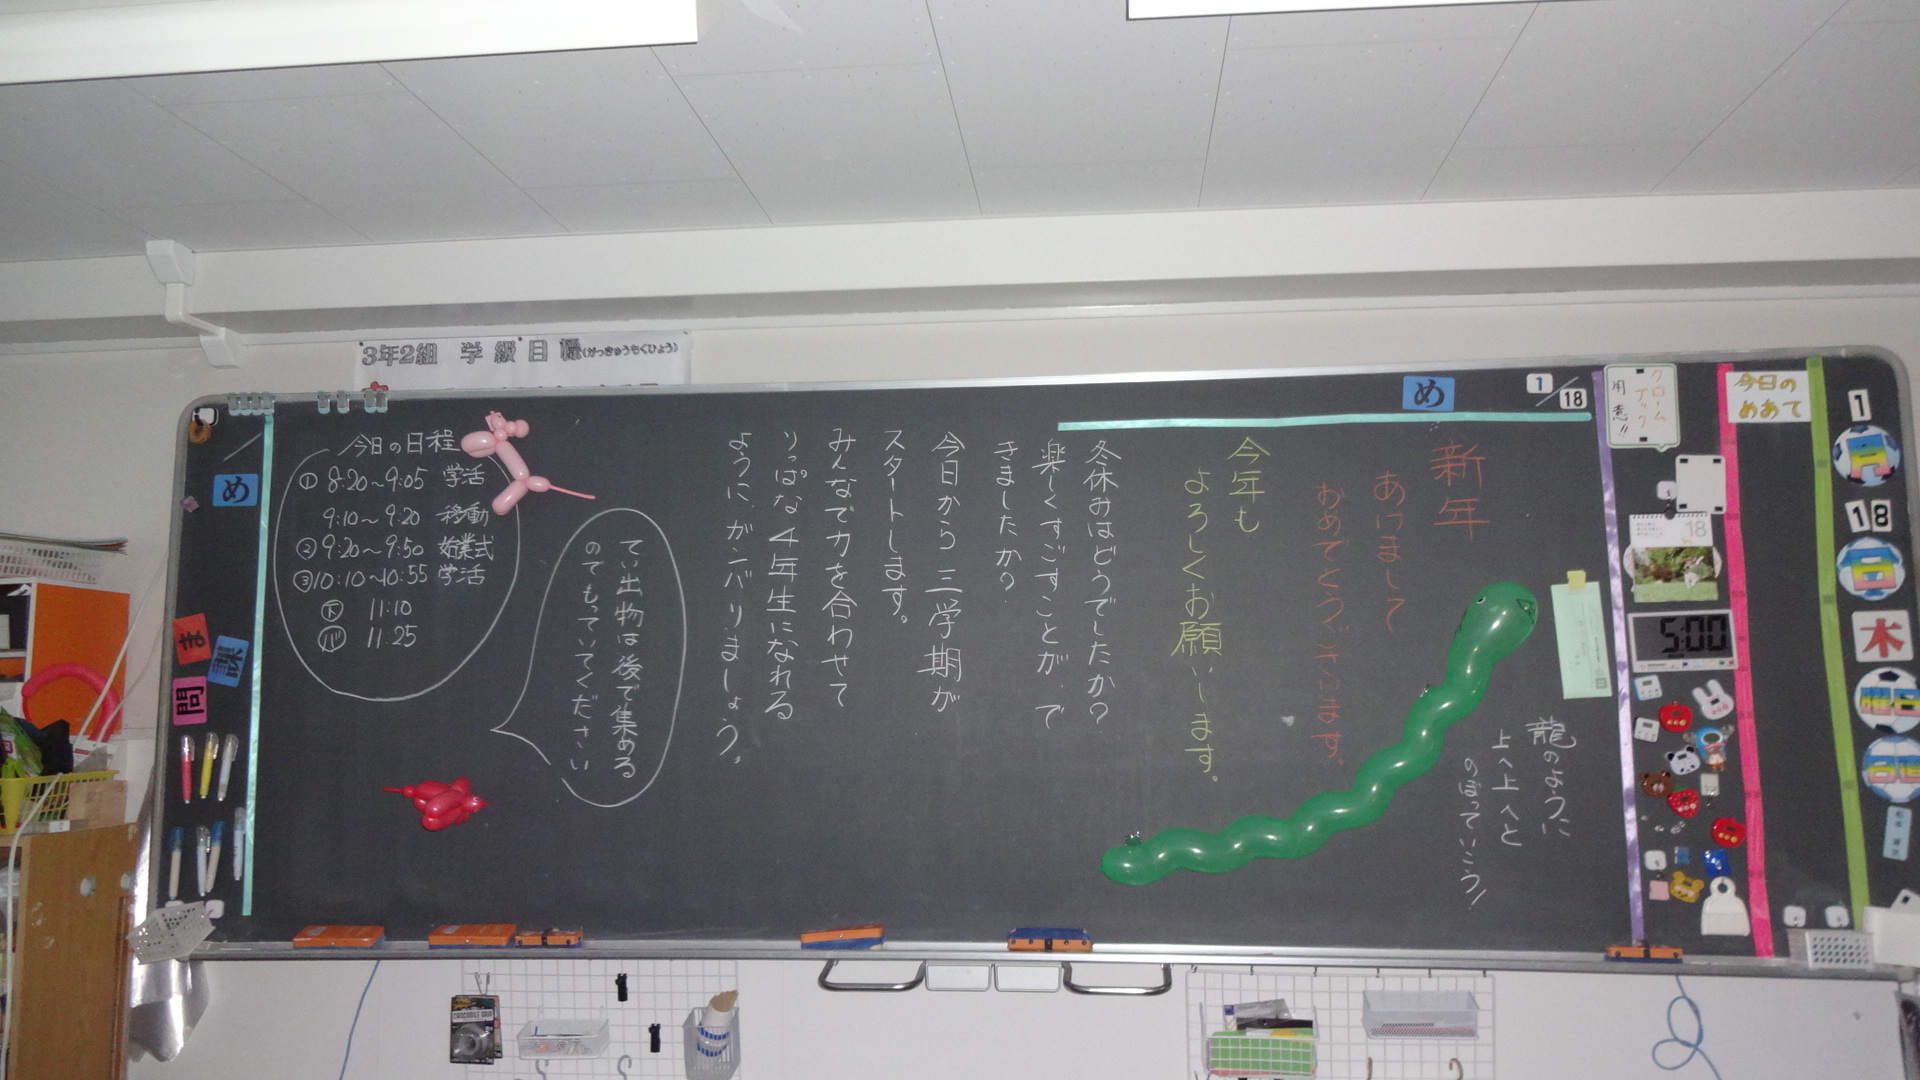 3年2組 学級目標(がっきゅうもくひょう)
1
月
18
日
木
曜日
日直
今日の
めあて
クローム
ブック
用意!!
18
5:00
め
1/18
新年
あけまして
おめでとうございます。
今年も
よろしくお願いします。
龍のように
上へ上へと
のぼっていこう!
冬休みはどうでしたか?
楽しくすごすことが、で
きましたか?
今日から三学期が
スタートします。
みんなで力を合わせて
りっぱな4年生になれる
ように、ガンバリましょう。
てい出物は後で集める
のでもっていてください
今日の日程
① 8:20~9:05 学活
9:10~9:20 移動
② 9:20~9:50 始業式
③ 10:10~10:55 学活
㊦ 11:10
11:25
め
ま
問
CROCODILE GRIP